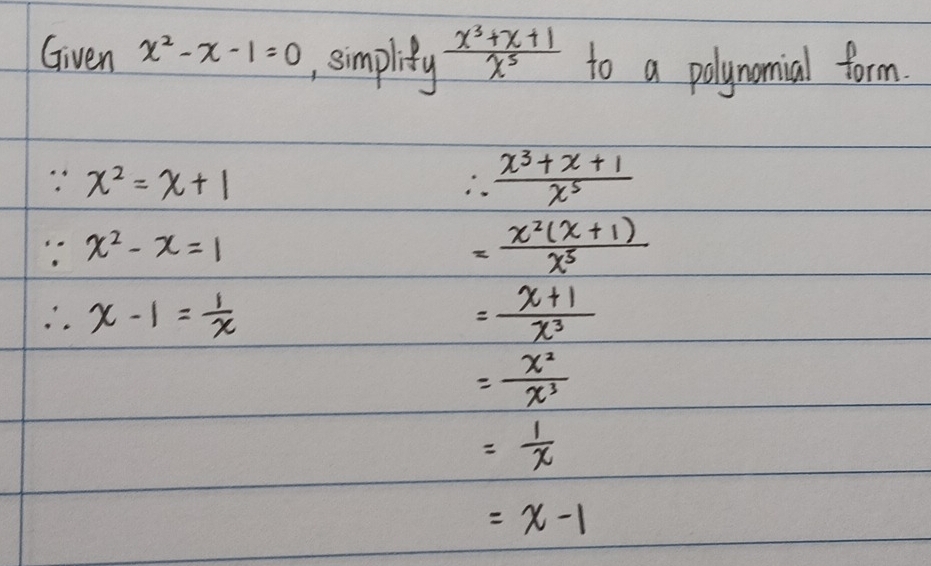 Given x² - x - 1 = 0, simplify (x³ + x + 1)/x⁵ to a polynomial form.
∵ x² = x + 1
∵ x² - x = 1
∴ x - 1 = 1/x
∴ (x³ + x + 1)/x⁵
= x²(x + 1)/x⁵
= (x + 1)/x³
= x²/x³
= 1/x
= x - 1